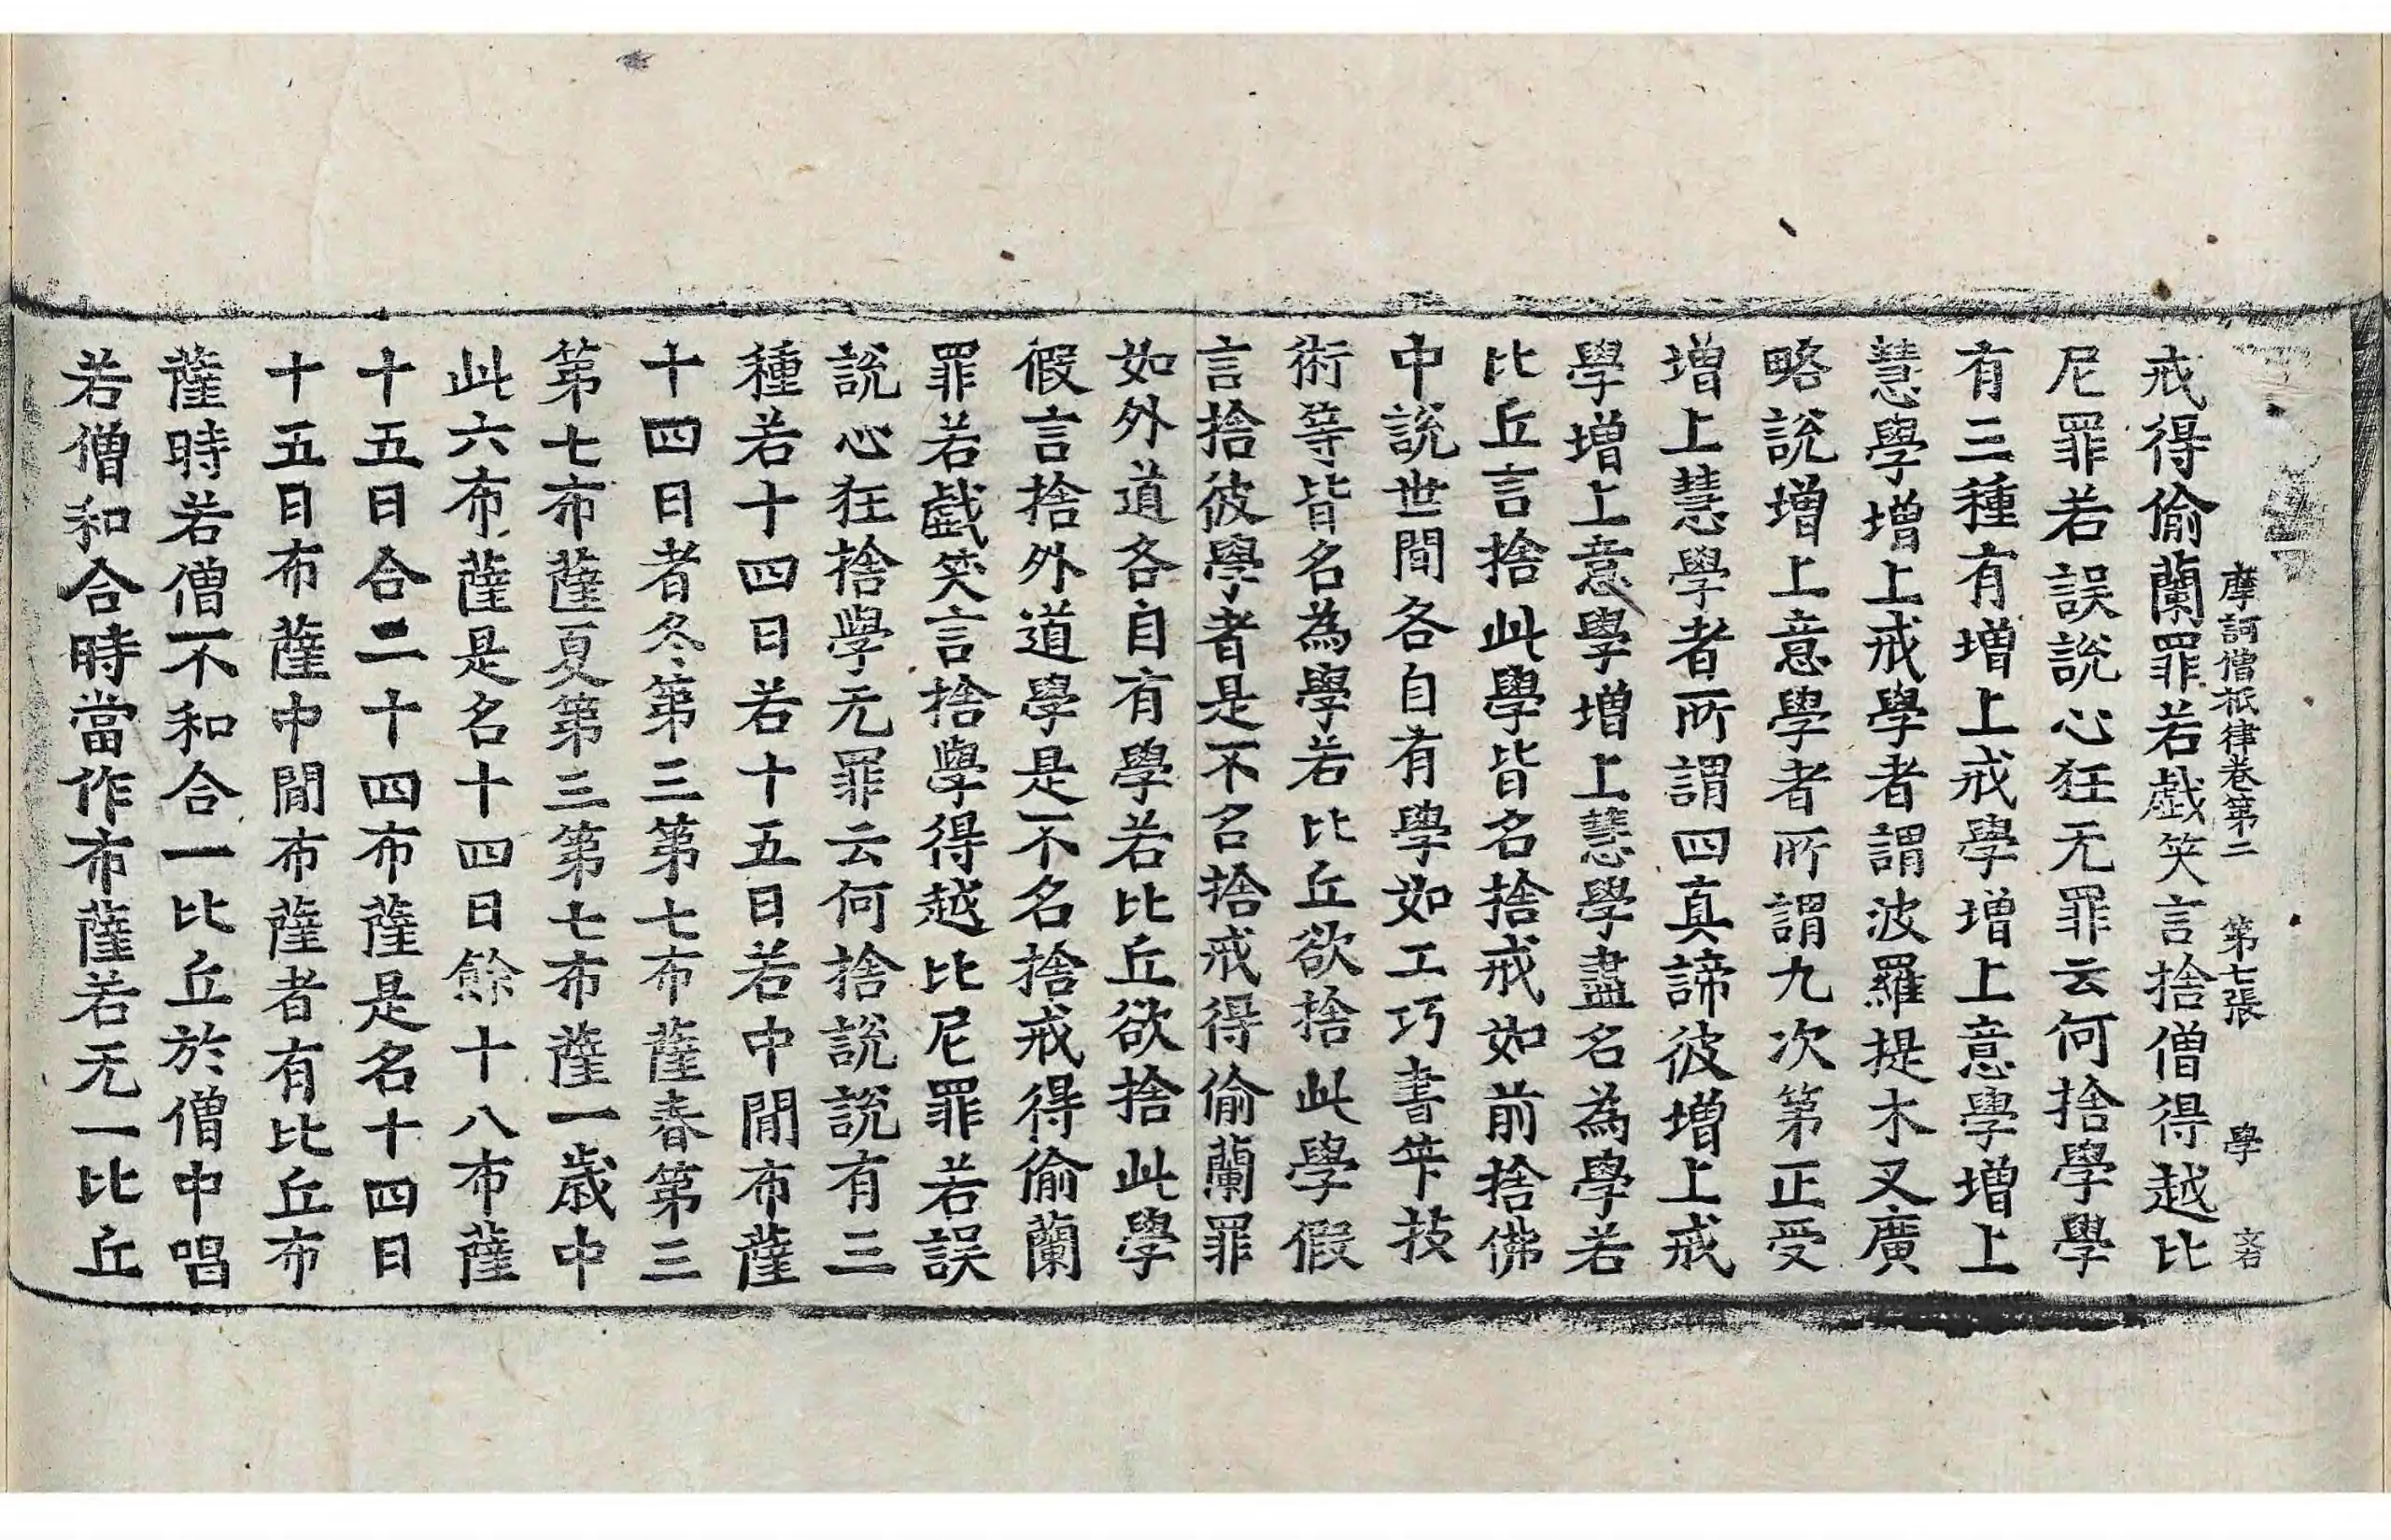 摩訶僧祇律卷第二 第七張 學 文右
戒得偷蘭罪若戲笑言捨僧得越比
尼罪若誤說心狂无罪云何捨學學
有三種有增上戒學增上意學增上
慧學增上戒學者謂波羅提木叉廣
略說增上意學者所謂九次第正受
增上慧學者所謂四真諦彼增上戒
學增上意學增上慧學盡名為學若
比丘言捨此學皆名捨戒如前捨佛
中說世間各自有學如工巧書筭技
術等皆名為學若比丘欲捨此學假
言捨彼學者是不名捨戒得偷蘭罪
如外道各自有學若比丘欲捨此學
假言捨外道學是不名捨戒得偷蘭
罪若戲笑言捨學得越比尼罪若誤
說心狂捨學无罪云何捨說說有三
種若十四日若十五日若中間布薩
十四日者冬第三第七布薩春第三
第七布薩夏第三第七布薩一歲中
此六布薩是名十四日餘十八布薩
十五日合二十四布薩是名十四日
十五日布薩中間布薩者有比丘布
薩時若僧不和合一比丘於僧中唱
若僧和合時當作布薩若无一比丘